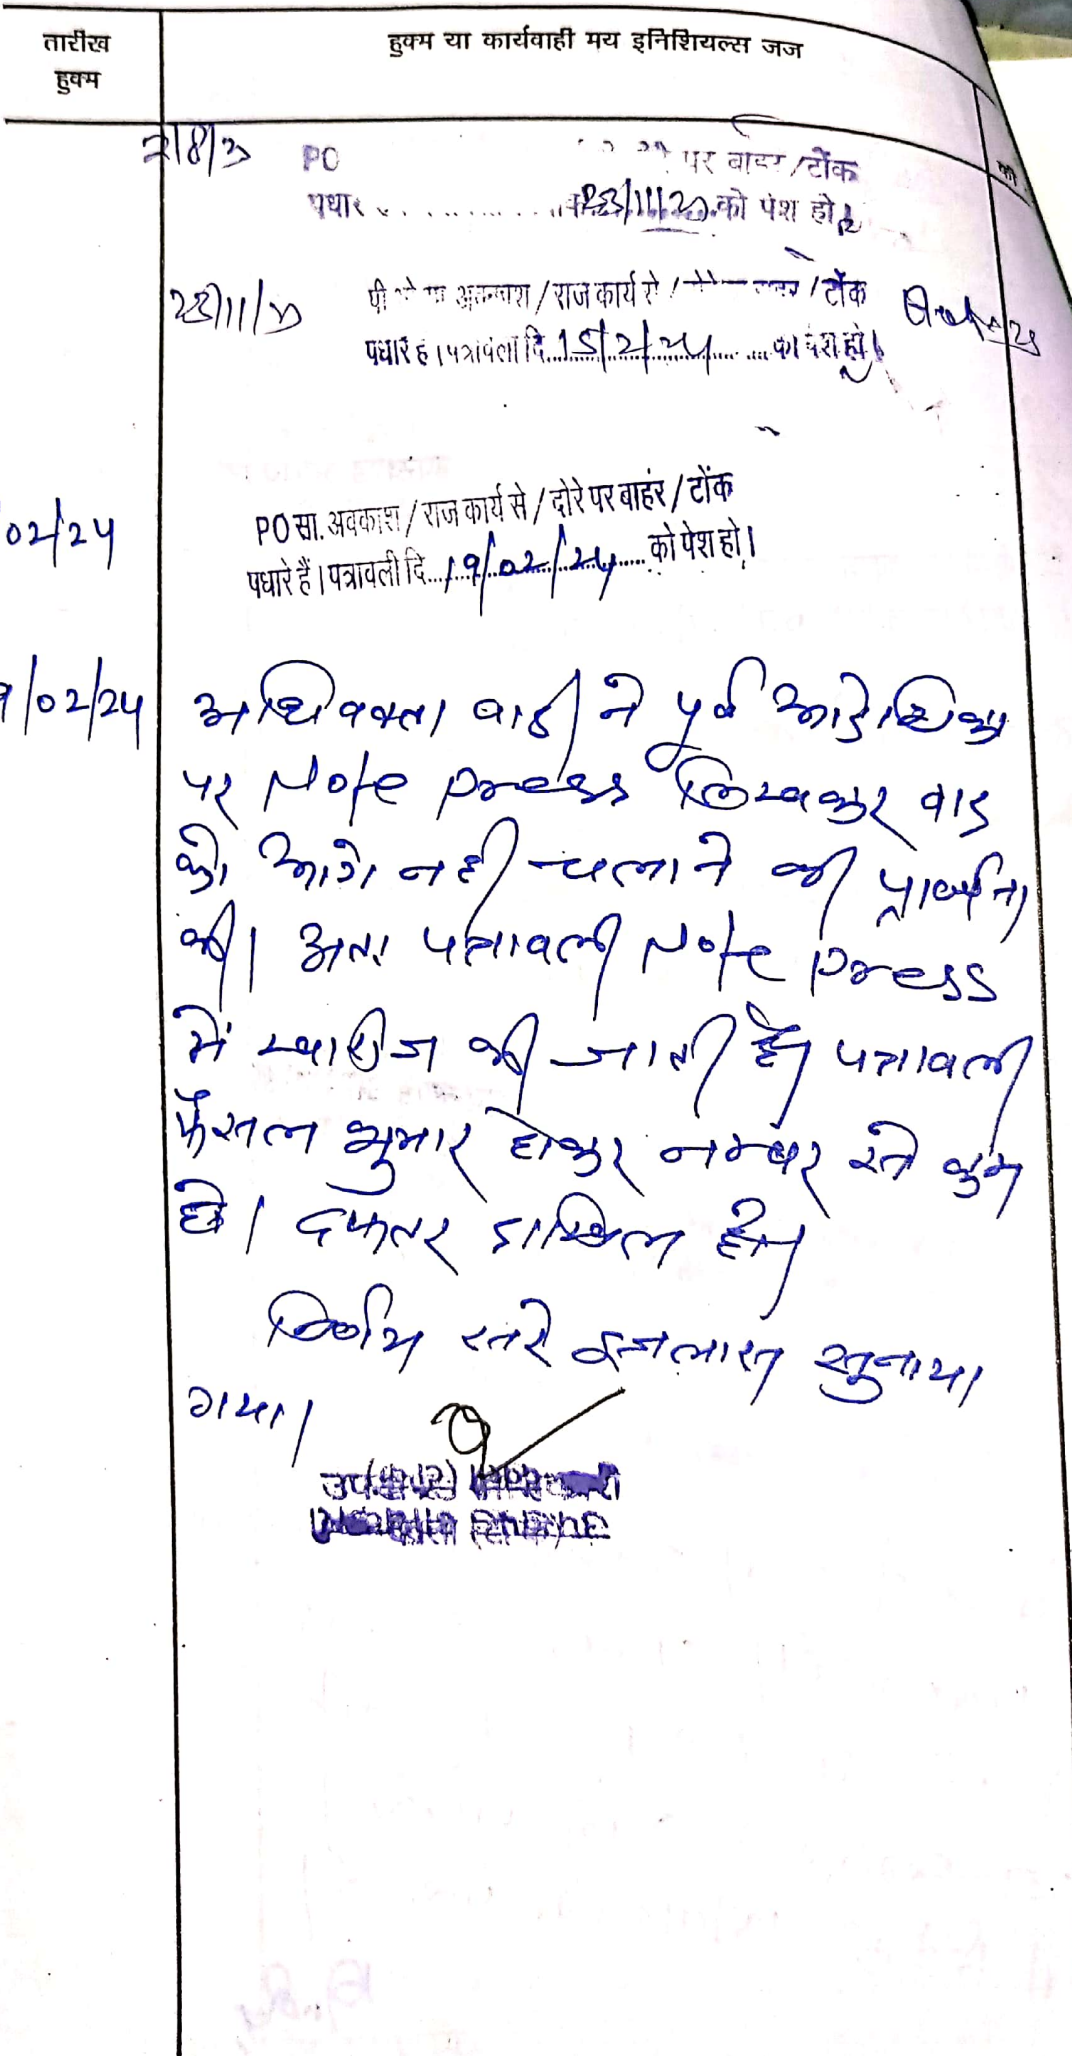 तारीख
हुक्म
हुक्म या कार्यवाही मय इनिशियल्स जज
PO पर बाहर/टोंक
पधार 23/11/23 को पेश हो
23/11/23
अवकाश/राज कार्य से / /टोंक
पधारे हैं। पत्रावली दि. 15/2/24 को पेश हो।
02/24
PO सा. अवकाश/राज कार्य से/दोरे पर बाहर/टोंक
पधारे हैं। पत्रावली दि. 19/02/24 को पेश हो।
9/02/24
अधिवक्ता वादी ने पूर्व आदेशिका
पर Note press लिखकर वाद
को आगे नही चलाने की प्रार्थना
की। अतः पत्रावली Note press
में खारीज की जाती है। पत्रावली
फैसल शुमार होकर नम्बर से कम
हो। दफ्तर दाखिल हो।
निर्णय सरे इजलास सुनाया
गया।